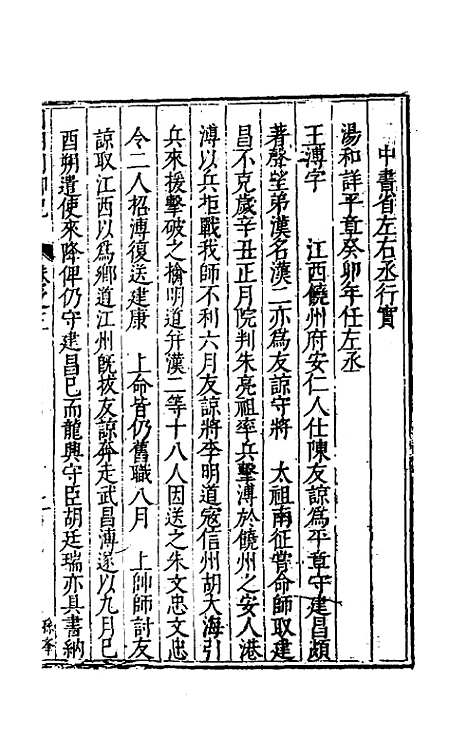 中書省左右丞行實
湯和詳平章癸卯年任左丞
王溥字　江西饒州府安仁人仕陳友諒爲平章守建昌頗
著聲望弟漢名漢二亦爲友諒守將　太祖南征嘗命師取建
昌不克歲辛丑正月院判朱亮祖率兵擊溥於饒州之安人港
溥以兵拒戰我師不利六月友諒將李明道寇信州胡大海引
兵來援擊破之擒明道并漢二等十八人因送之朱文忠文忠
令二人招溥復送建康　上命皆仍舊職八月　上帥師討友
諒取江西以爲鄉道江州既拔友諒奔走武昌溥遂以九月己
酉朔遣使來降俾仍守建昌已而龍興守臣胡廷瑞亦具書納